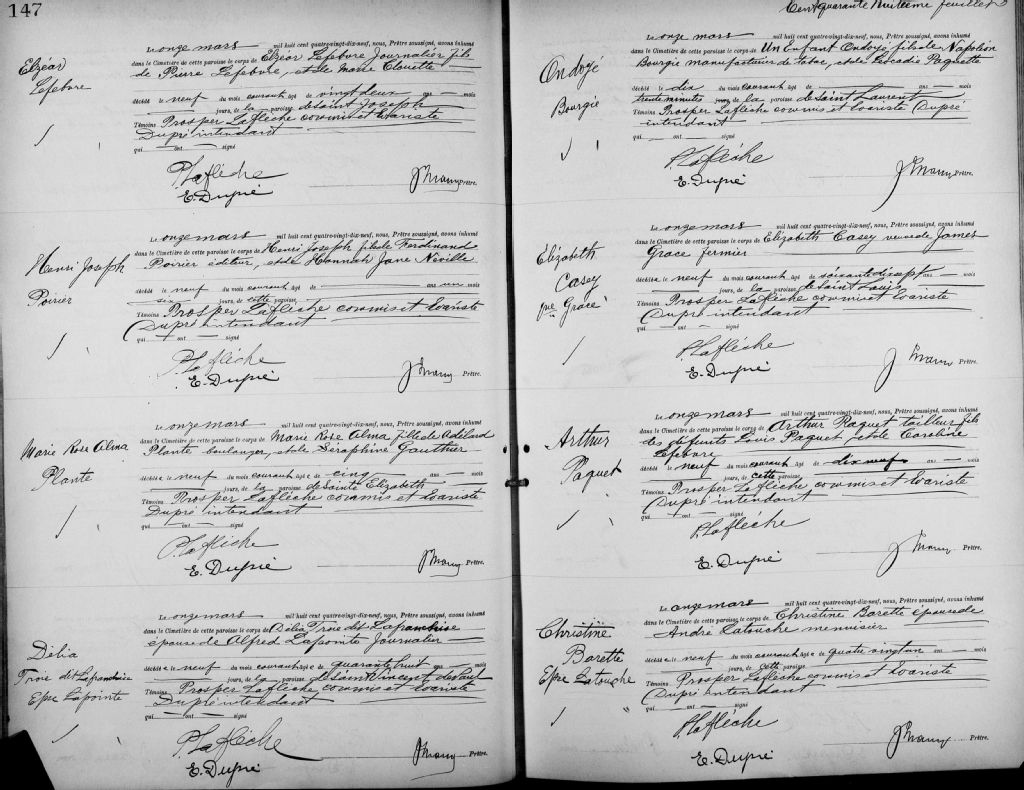 147
Elzéar
Lefebvre
Le onze mars mil huit cent quatre-vingt-dix-neuf, nous, Prêtre soussigné, avons inhumé
dans le Cimetière de cette paroisse le corps de Elzéar Lefebvre Journalier fils
de Pierre Lefebvre, et de Marie Clouette
décédé le neuf du mois courant âgé de vingt deux ans — mois
— jours, de la paroisse de Saint Joseph
Témoins Prosper Laflèche commis et Evariste
Dupré intendant
qui — ont — signé
P. Laflèche
E. Dupré
Prêtre.
Henri Joseph
Poirier
Le onze mars mil huit cent quatre-vingt-dix-neuf, nous, Prêtre soussigné, avons inhumé
dans le Cimetière de cette paroisse le corps de Henri Joseph fils de Ferdinand
Poirier éditeur, et de Hannah Jane Neville
décédé le neuf du mois courant âgé de — ans un mois
six jours, de cette paroisse,
Témoins Prosper Laflèche commis et Evariste
Dupré intendant
qui — ont — signé
P. Laflèche
E. Dupré
Prêtre.
Marie Rose Alma
Plante
Le onze mars mil huit cent quatre-vingt-dix-neuf, nous, Prêtre soussigné, avons inhumé
dans le Cimetière de cette paroisse le corps de Marie Rose Alma fille de Adélard
Plante boulanger, et de Séraphine Gauthier
décédée le neuf du mois courant âgée de cinq ans — mois
— jours, de la paroisse de Sainte Elizabeth
Témoins Prosper Laflèche commis et Evariste
Dupré intendant
qui — ont — signé
P. Laflèche
E. Dupré
Prêtre.
Délia
Troie dit Lafranchise
Epse Lapointe
Le onze mars mil huit cent quatre-vingt-dix-neuf, nous, Prêtre soussigné, avons inhumé
dans le Cimetière de cette paroisse le corps de Délia Troie dit Lafranchise
épouse de Alfred Lapointe Journalier
décédée le neuf du mois courant âgée de quarante huit ans — mois
— jours, de la paroisse de Saint Vincent de Paul
Témoins Prosper Laflèche, commis et Evariste
Dupré intendant
qui — ont — signé
P. Laflèche
E. Dupré
Prêtre.
Cent quarante huitième feuillet
Ondoyé
Bourgie
Le onze mars mil huit cent quatre-vingt-dix-neuf, nous, Prêtre soussigné, avons inhumé
dans le Cimetière de cette paroisse le corps de Un Enfant Ondoyé fils de Napoléon
Bourgie manufacturier de tabac, et de Léocadie Paquette
décédé le dix du mois courant âgé de — ans — mois
trente minutes jours, de la paroisse de Saint Laurent
Témoins Prosper Laflèche commis et Evariste Dupré
intendant
qui — ont — signé
P. Laflèche
E. Dupré
Prêtre.
Elizabeth
Casey
Vve Grace
Le onze mars mil huit cent quatre-vingt-dix-neuf, nous, Prêtre soussigné, avons inhumé
dans le Cimetière de cette paroisse le corps de Elizabeth Casey veuve de James
Grace fermier
décédée le neuf du mois courant âgée de soixante dix sept ans — mois
— jours, de la paroisse de Saint Louis
Témoins Prosper Laflèche commis et Evariste
Dupré intendant
qui — ont — signé
P. Laflèche
E. Dupré
Prêtre.
Arthur
Paquet
Le onze mars mil huit cent quatre-vingt-dix-neuf, nous, Prêtre soussigné, avons inhumé
dans le Cimetière de cette paroisse le corps de Arthur Paquet tailleur fils
de défunts Louis Paquet et de Caroline
Lefebvre
décédé le neuf du mois courant âgé de dix neuf ans — mois
— jours, de cette paroisse
Témoins Prosper Laflèche commis et Evariste
Dupré intendant
qui — ont — signé
P. Laflèche
E. Dupré
Prêtre.
Christine
Barette
Epse Latouche
Le onze mars mil huit cent quatre-vingt-dix-neuf, nous, Prêtre soussigné, avons inhumé
dans le Cimetière de cette paroisse le corps de Christine Barette épouse de
André Latouche menuisier
décédée le neuf du mois courant âgée de quatre vingt un ans — mois
— jours, de cette paroisse
Témoins Prosper Laflèche commis et Evariste
Dupré intendant
qui — ont — signé
P. Laflèche
E. Dupré
Prêtre.